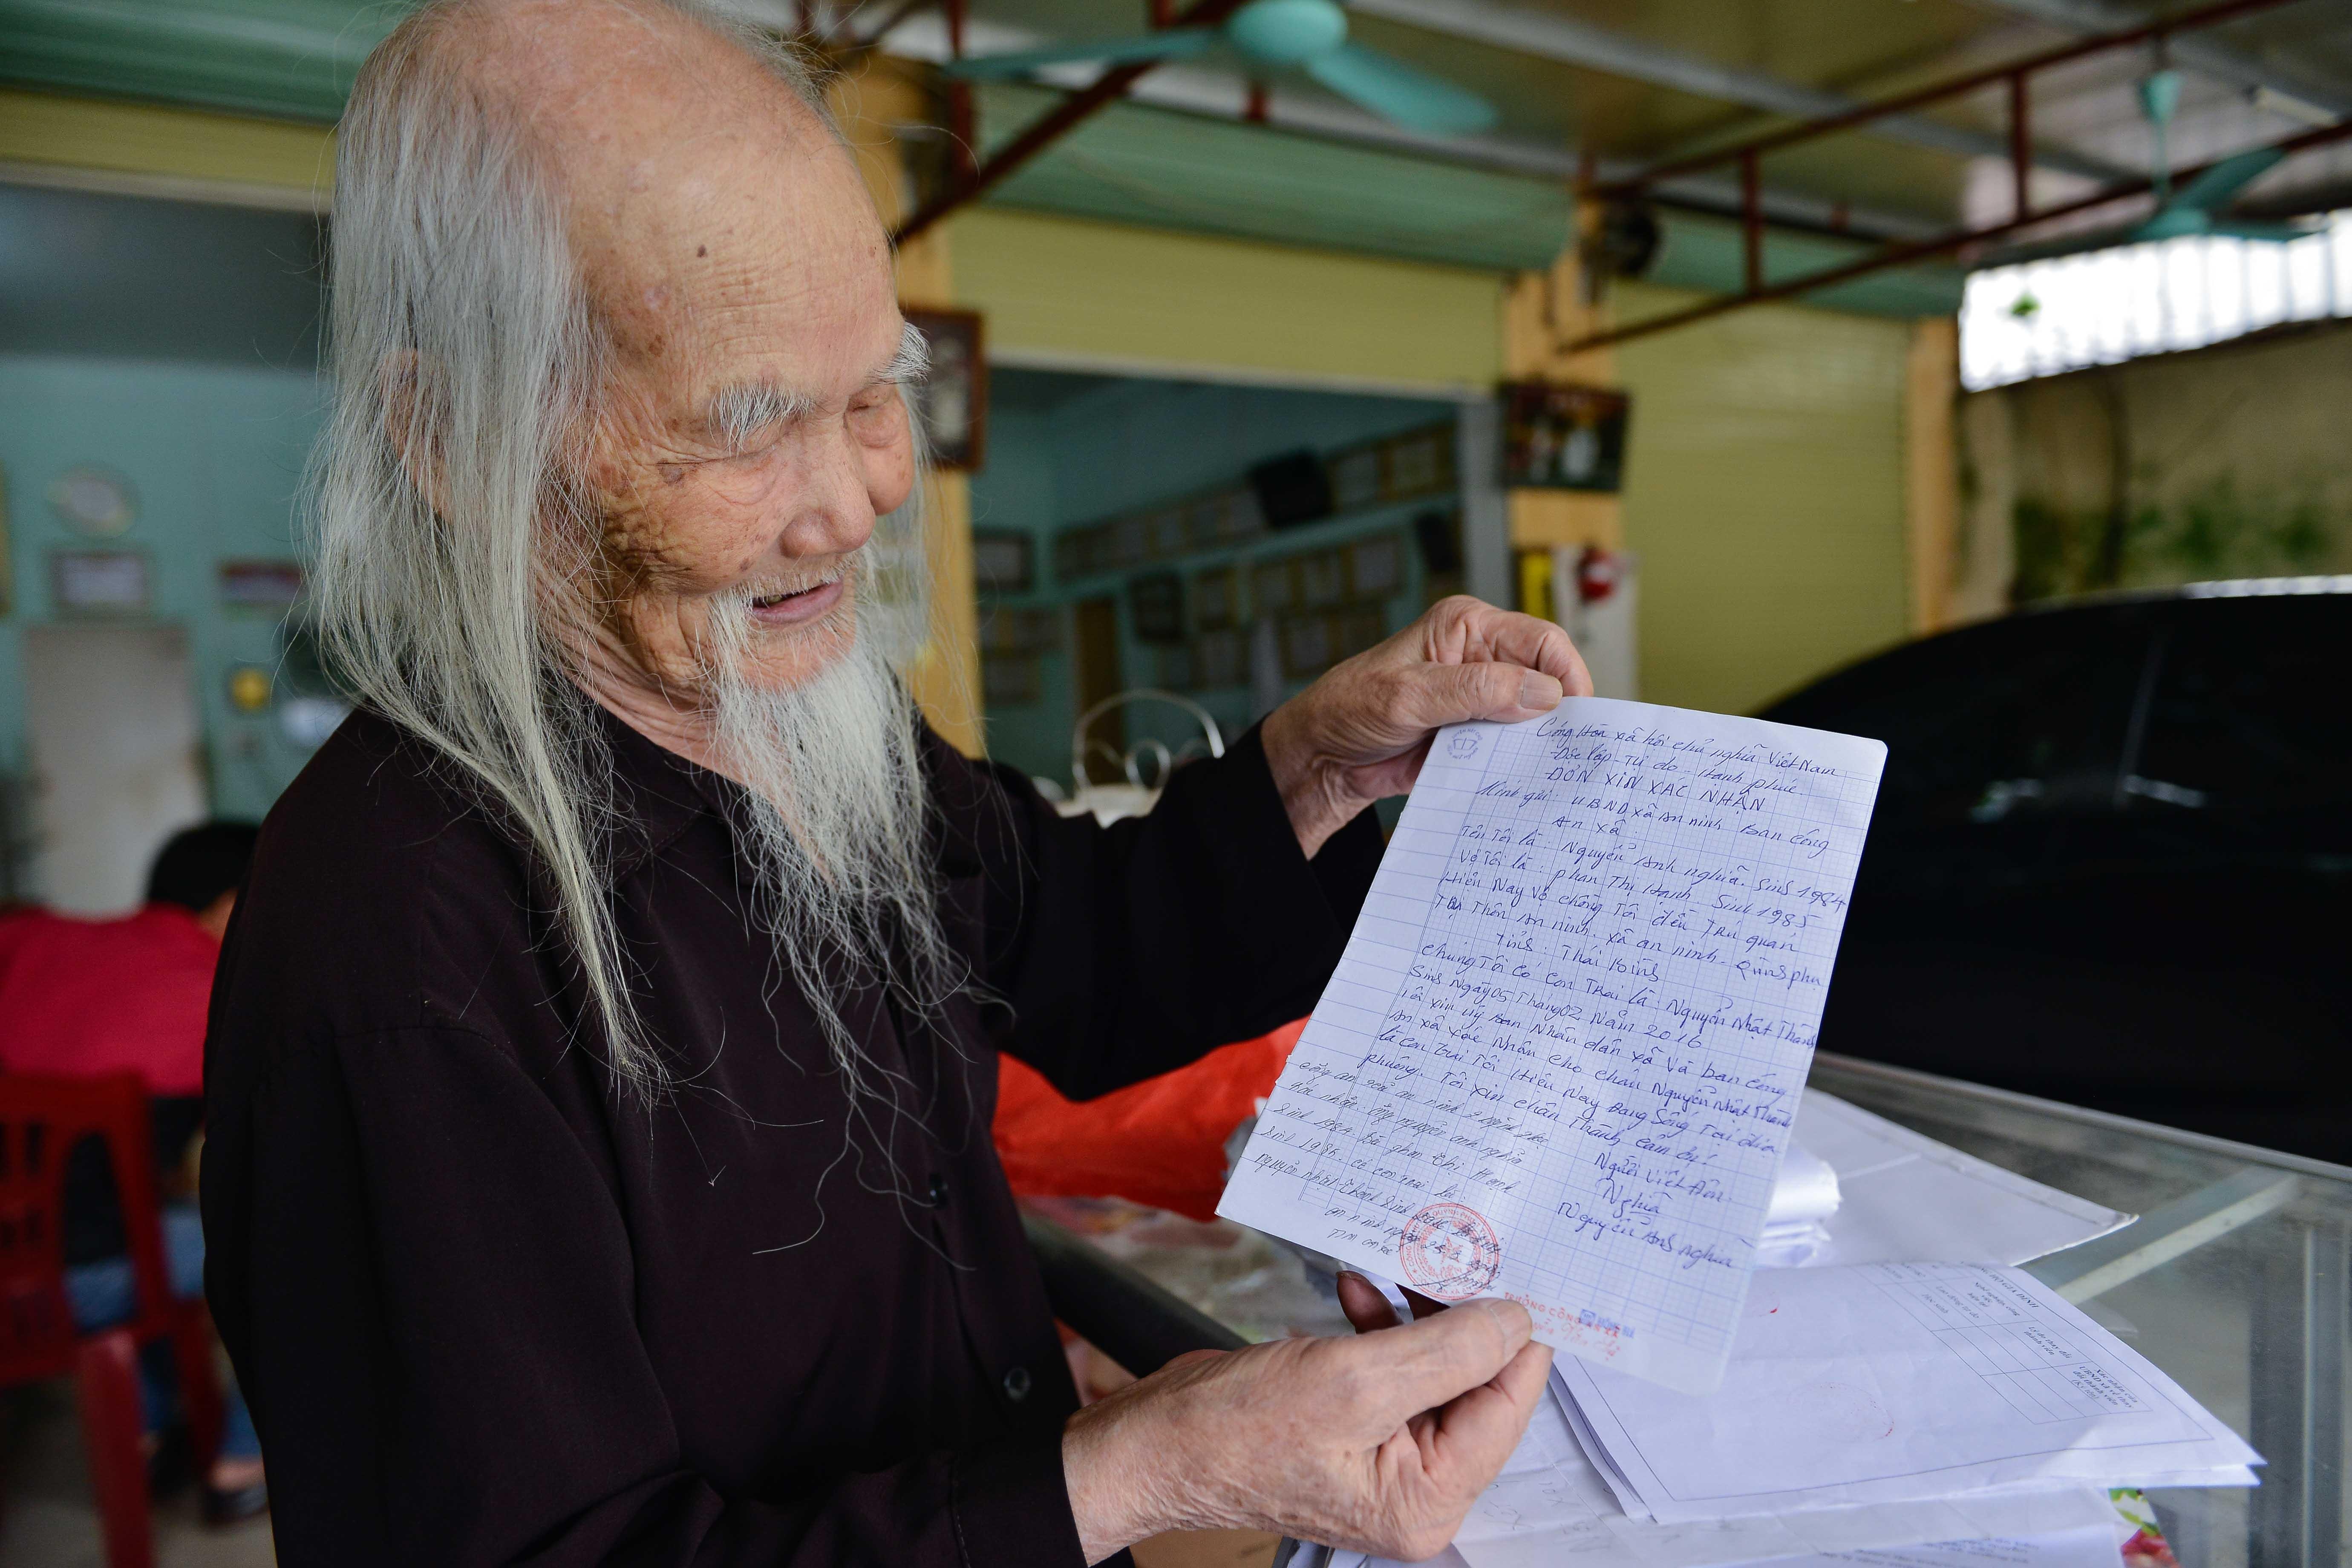 Cộng Hòa xã hội chủ nghĩa Việt Nam
Độc lập - Tự do - Hạnh phúc
ĐƠN XIN XÁC NHẬN
Kính gửi: UBND xã An ninh Ban Công
An xã
Tên Tôi là: Nguyễn Anh nghĩa. Sinh 1984
Vợ Tôi là: phan Thị Hạnh. Sinh 1985
Hiện Nay vợ chồng Tôi đều TRú quán
Tại Thôn An ninh. xã an ninh - Quỳnh phụ
Tỉnh: Thái Bình
chúng Tôi Có Con TRai là: Nguyễn Nhật Thành
Sinh Ngày 05 Tháng 02 Năm 2016
Tôi xin Uỷ Ban Nhân dân xã Và ban Công
An xã xác Nhận cho cháu Nguyễn Nhật Thành
là con trai Tôi Hiện Nay Đang Sống Tại địa
phương. Tôi xin chân Thành cảm ơn!
Người viết đơn
Nghĩa
Nguyễn Anh nghĩa
công an xã an ninh
xác nhận ông nguyễn anh nghĩa
sinh 1984 Bà phan thị Hạnh
sinh 1985. có con trai là
nguyễn nhật thành sinh
an ninh ngày
TM
TRƯỞNG CÔNG AN XÃ